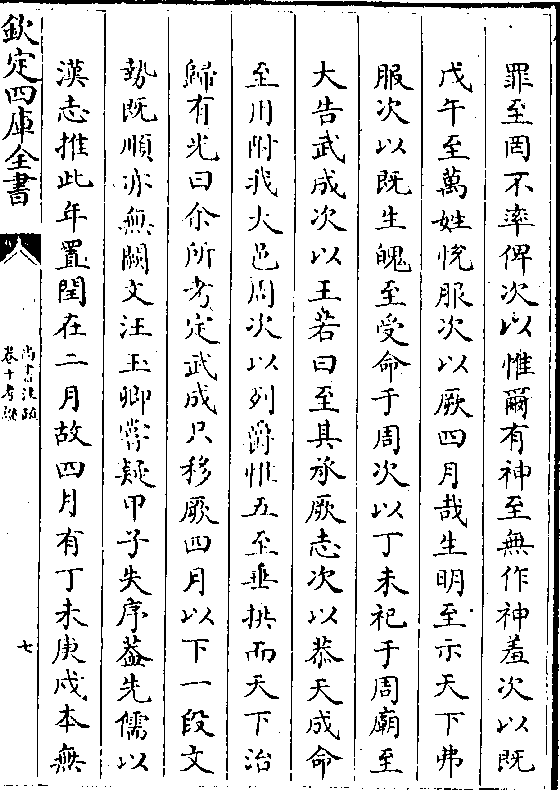 罪至罔不率俾次以惟爾有神至無作神羞次以既
戊午至萬姓悅服次以厥四月哉生明至示天下弗
服次以既生魄至受命于周次以丁未祀于周廟至
大告武成次以王若曰至其承厥志次以恭天成命
至用附我大邑周次以列爵惟五至垂拱而天下治
歸有光曰余所考定武成只移厥四月以下一段文
勢既順亦無闕文汪玉卿嘗疑甲子失序葢先儒以
漢志推此年置閏在二月故四月有丁未庚戌本無
欽定四庫全書
尚書注疏
卷十考證
七